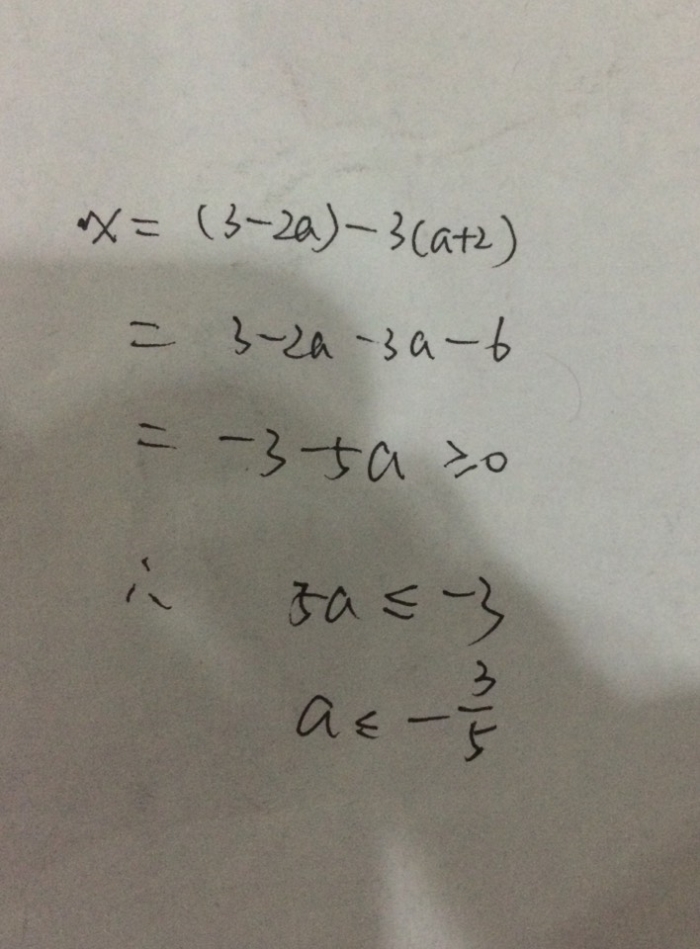 x = (3-2a)-3(a+2)
= 3-2a-3a-6
= -3-5a ≥0
∴ 5a ≤ -3
a ≤ -3/5